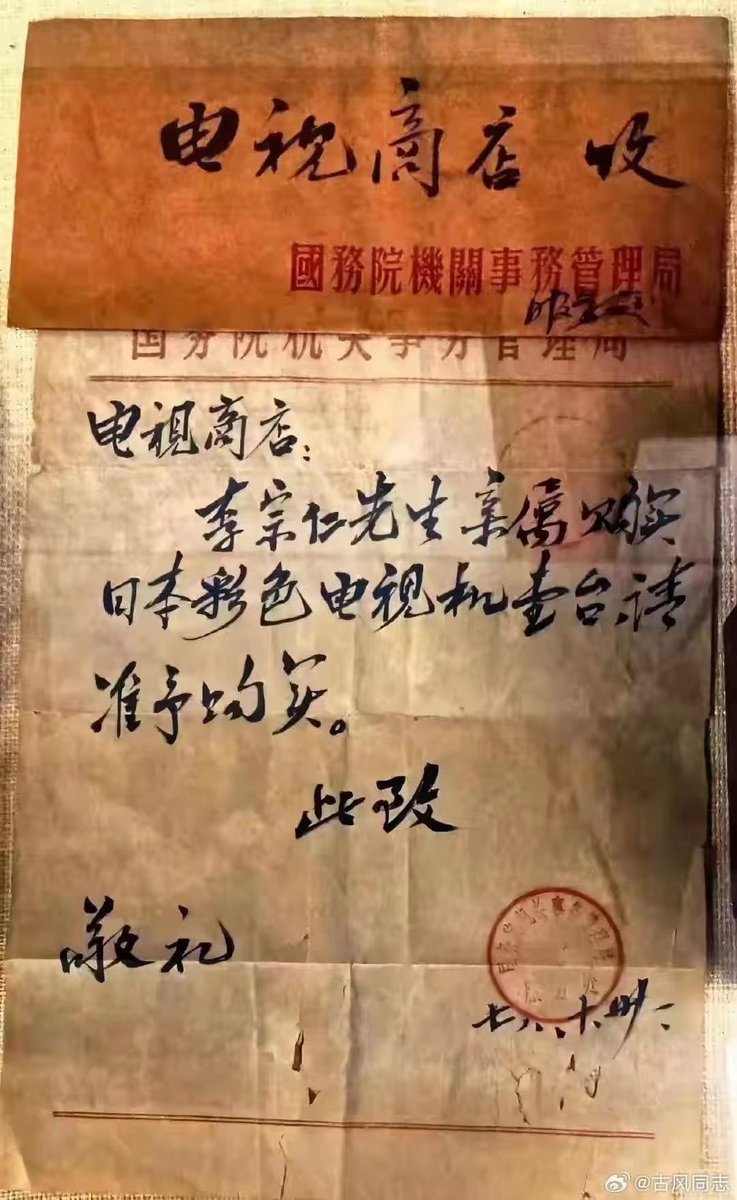 电视商店 收
國務院機關事務管理局
国务院机关事务管理局
电视商店：
李宗仁先生亲属购买
日本彩色电视机壹台，请
准予购买。
此致
敬礼
@古风同志